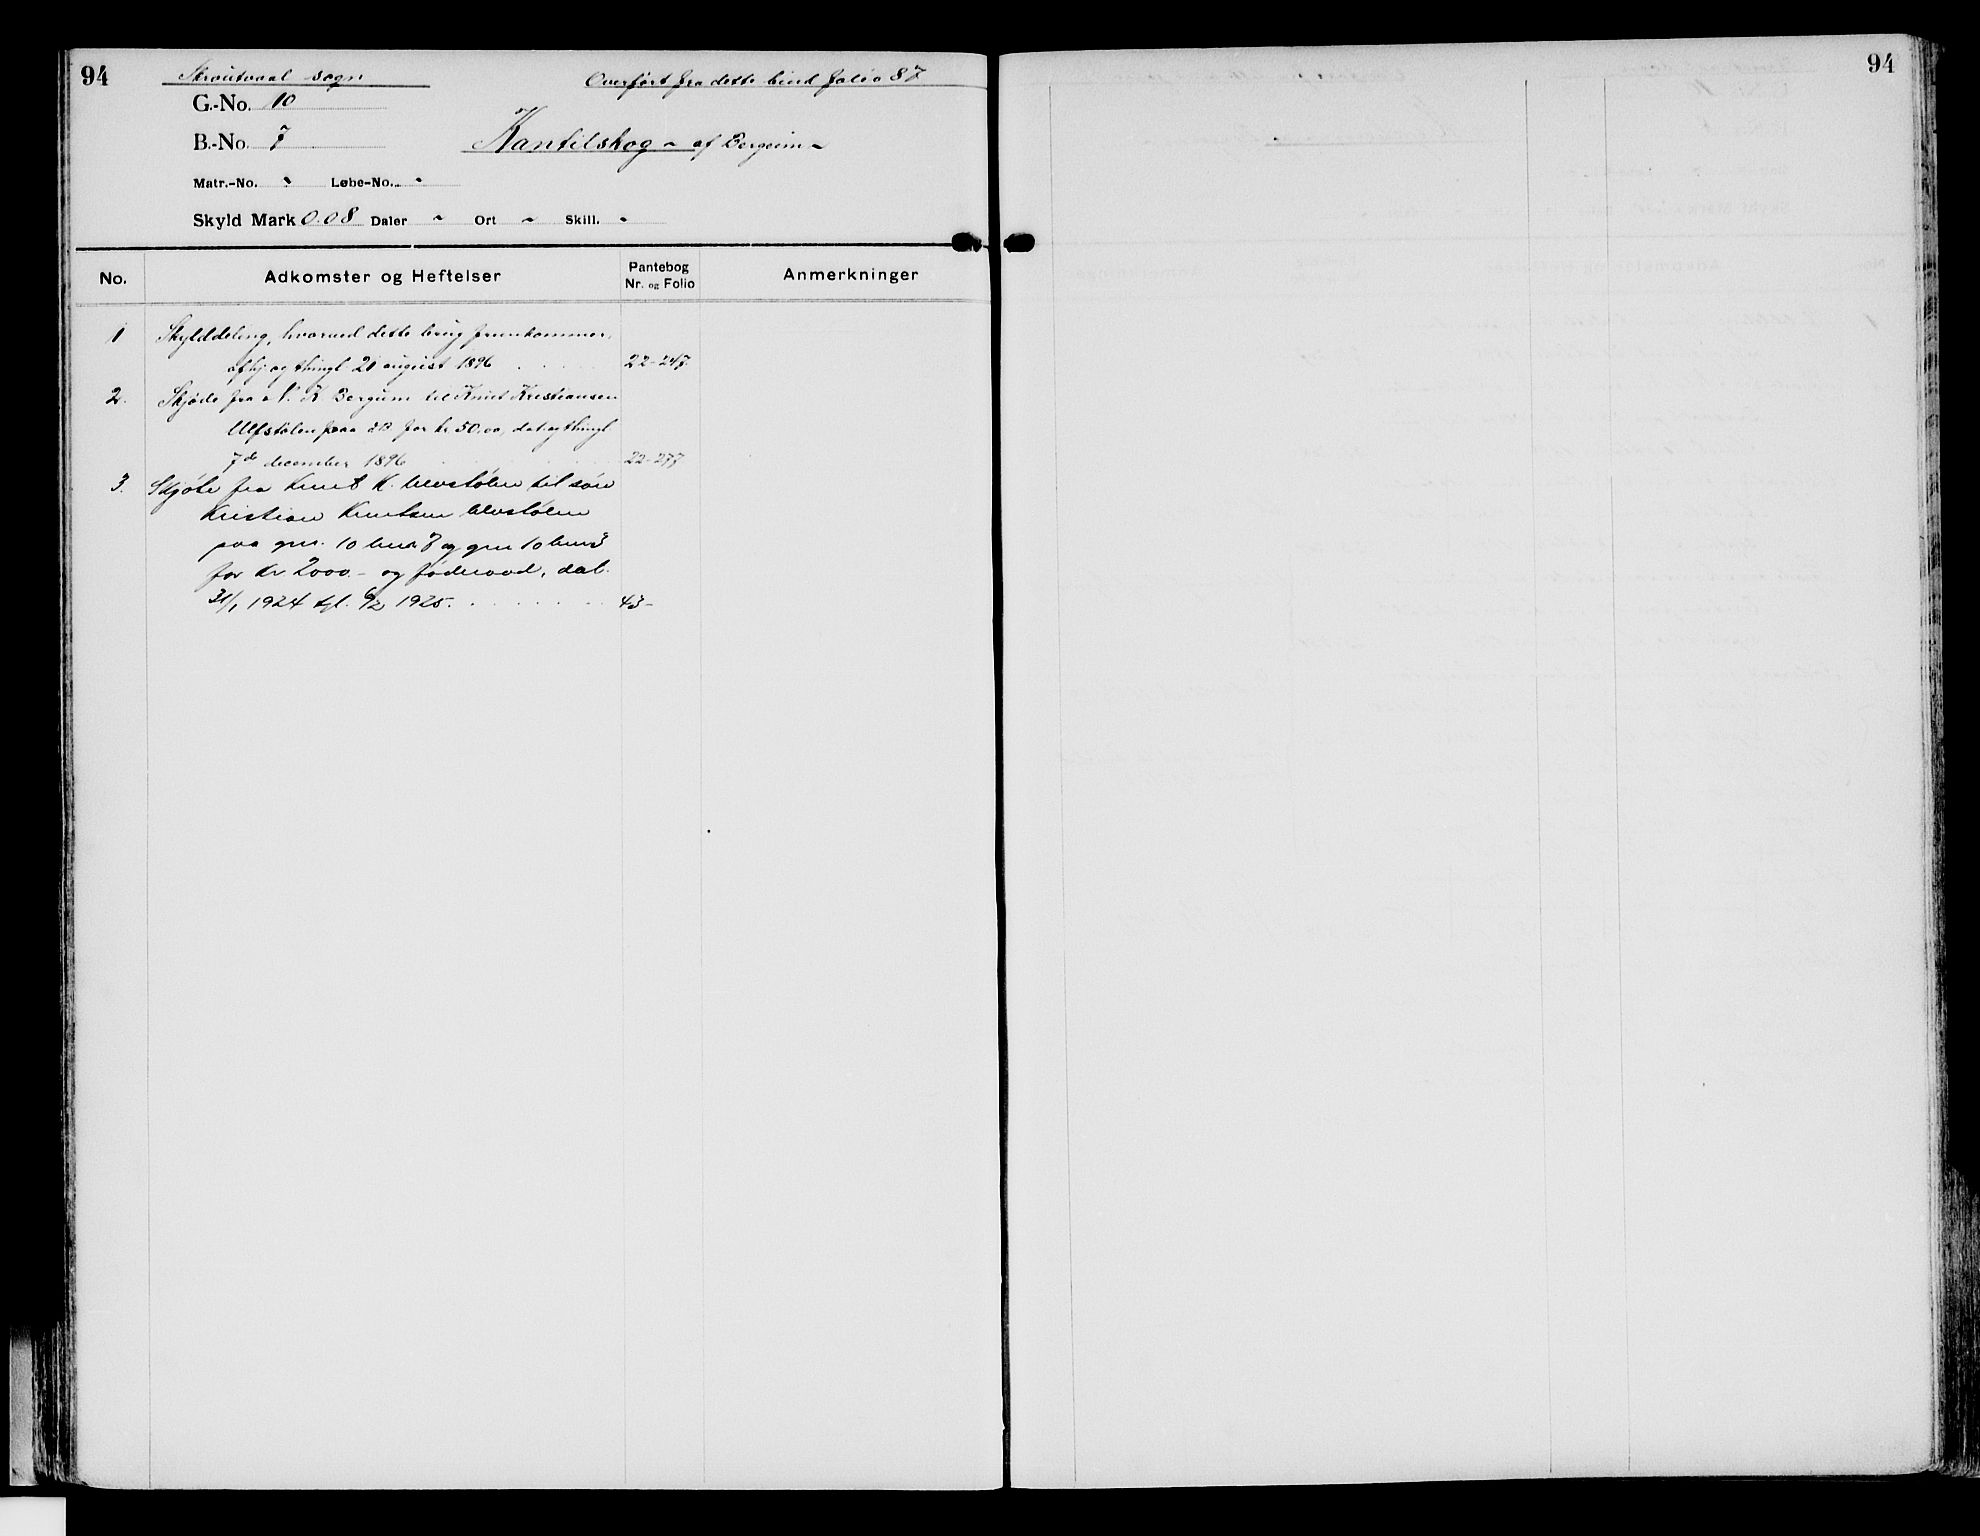 94
Skrautvaal sogn
Overført fra dette bind folio 87
G.-No. 10
B.-No. 7
Kantilskog - af Bergum -
Matr.-No. " Løbe-No. "
Skyld Mark 0.08 Daler " Ort " Skill. "
No. Adkomster og Heftelser Pantebog Nr. og Folio Anmerkninger
1 Skylddeling, hvorved dette brug fremkommer,
afhj. og thingl. 21 august 1896 . . . . 22-247.
2. Skjøde fra N. K. Bergum til Knut Kristiansen
Ulfstølen paa do for kr. 50.00, dat. og thingl.
7de december 1896 . . . . 22-277
3. Skjøte fra Knut K. Ulvstølen til søn
Kristian Knutsen Ulvstølen
paa gnr. 10 bnr. 7 og gnr 10 bnr 3
for kr 2000.- og føderaad, dat.
31/1 1924 tgl. 6/2 1925. . . . . . . 43-
94